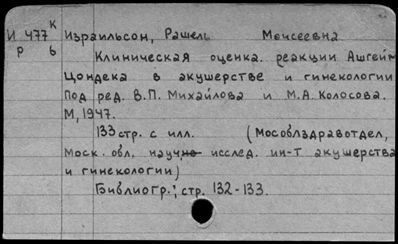 И 477 К
Р 6
Израильсон, Рашель Моисеевна
Клиническая оценка реакции Ашгейм
Цондека в акушерстве и гинекологии
Под ред. В.П. Михайлова и М.А. Колосова.
М, 1947.
133 стр. с илл. (Мособлздравотдел,
Моск. обл. научно исслед. ин-т акушерства
и гинекологии)
Библиогр.; стр. 132-133.